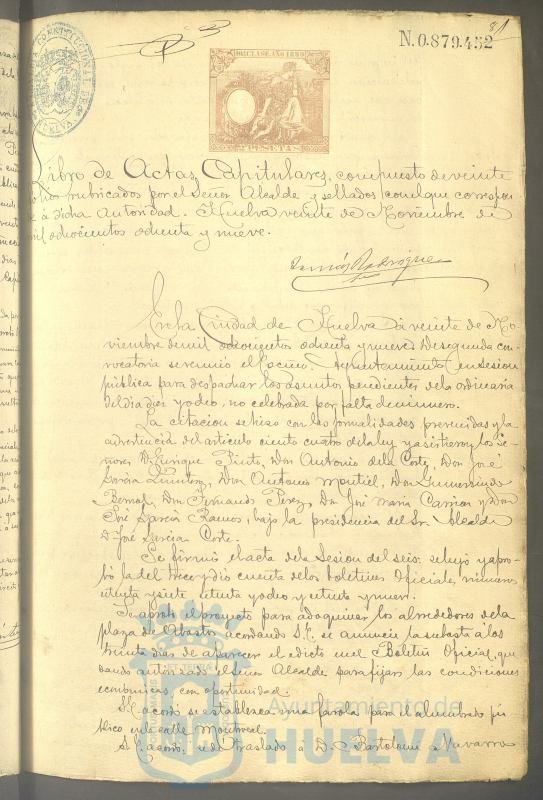 81
N.0.879.452
CLASE AÑO 1889
PESETAS
CONSTITUCIONAL DE
HUELVA
Libro de Actas Capitulares, compuesto de veinte
rubricados por el Señor Alcalde y sellados con el que correspon
de á dicha autoridad. Huelva veinte de Noviembre de
mil ochocientos ochenta y nueve.
Rodriguez
En la Ciudad de Huelva á veinte de No
viembre de mil ochocientos ochenta y nueve. De segunda con
vocatoria se reunió el Ayuntamiento en Sesion
pública para despachar los asuntos pendientes de la ordinaria
del dia diez y ocho, no celebrada por falta de número.
La citacion se hizo con las formalidades prevenidas y la
advertencia del articulo ciento cuatro de la ley y asistieron los Se
ñores D. Enrique Pinto, Don Antonio de la Corte, Don José
Garcia Don Antonio Montiel, Don Gumersindo
Bernal, Don Fernando Perez, Dn. José Maria Carrion y Don
José Garcia Ramos, bajo la presidencia del Sr. Alcalde
Dn. José Garcia Corte.
Se firmó el acta de la Sesion del seis, se leyó y apro
bó la del trece y dió cuenta de los boletines Oficiales, números
ochenta y siete ochenta y ocho y ochenta y nueve.
Se aprobó el proyecto para adoquinar los alrededores de la
plaza de Abastos acordando S.E. se anuncie la subasta á los
treinta dias de aparecer el edicto en el Boletin Oficial, que
dando autorizado el Señor Alcalde para fijar las condiciones
económicas con oportunidad.
S.E. acordó se establezca una farola para el alumbrado pú
blico en la calle Montreal.
S.E. acordó traslado á D. Bartolomé Navarro
ET TERRÆ
Ayuntamiento de
HUELVA